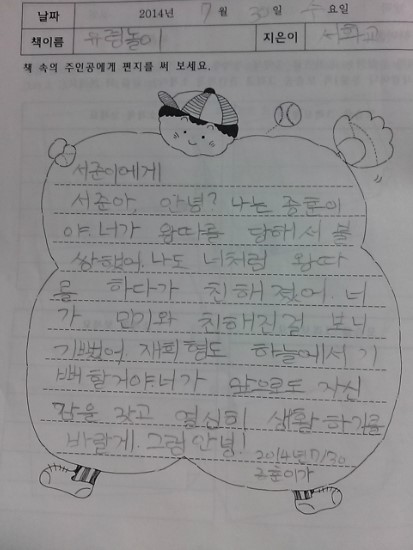 날짜 2014년 7월 30일 수요일
책이름 유령놀이 지은이 서화교
책 속의 주인공에게 편지를 써 보세요.
서준이에게
서준아, 안녕? 나는 종훈이
야. 너가 왕따를 당해서 불
쌍했어. 나도 너처럼 왕따
를 하다가 친해졌어. 너
가 민기와 친해진걸 보니
기뻤어. 재희형도 하늘에서 기
뻐할거야 너가 앞으로도 자신
감을 갖고 열심히 생활하기를
바랄게. 그럼 안녕!
2014년 7/30